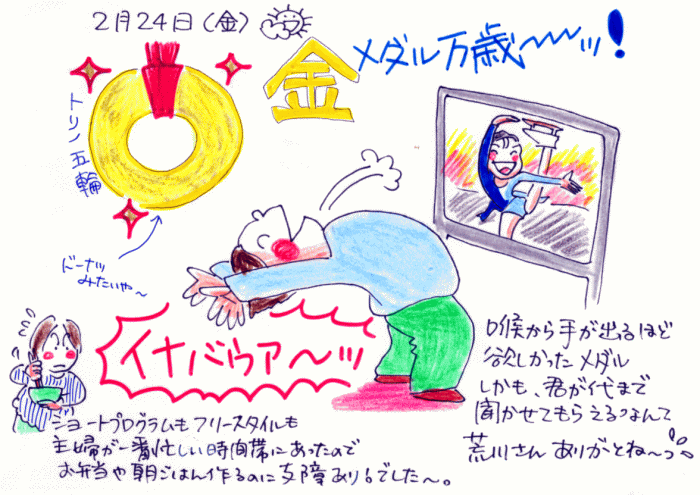 2月24日(金)
金メダル万歳〜〜〜ッ!
トリノ五輪
ドーナツ
みたいや〜
イナバウアー〜ッ
喉から手が出るほど
欲しかったメダル
しかも、君が代まで
聞かせてもらえるなんて
荒川さんありがとね〜
ショートプログラムもフリースタイルも
主婦が一番忙しい時間帯にあったので
お弁当や朝ごはん作るのに支障あり!でした〜。